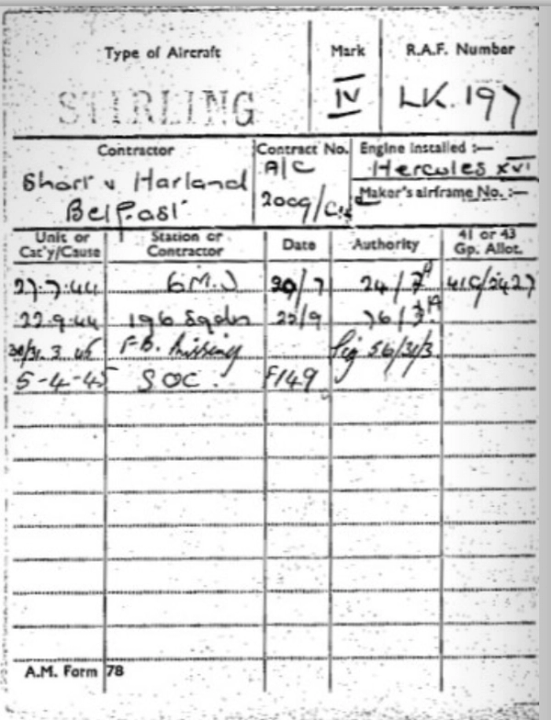 Type of Aircraft Mark R.A.F. Number
STIRLING IV LK.197
Contractor Contract No. Engine installed :—
Short & Harland A/C Hercules XVI
Belfast 2009/ Maker's airframe No. :—
Unit or Cat'y/Cause Station or Contractor Date Authority 41 or 43 Gp. Allot.
27-7-44 6 M.U 30/7 24/ 41G/
22.9.44 196 Sqdn 22/9 76/
30/31.3.45 F.B. Missing Sig 56/31/3.
5-4-45 SOC. F149
A.M. Form 78